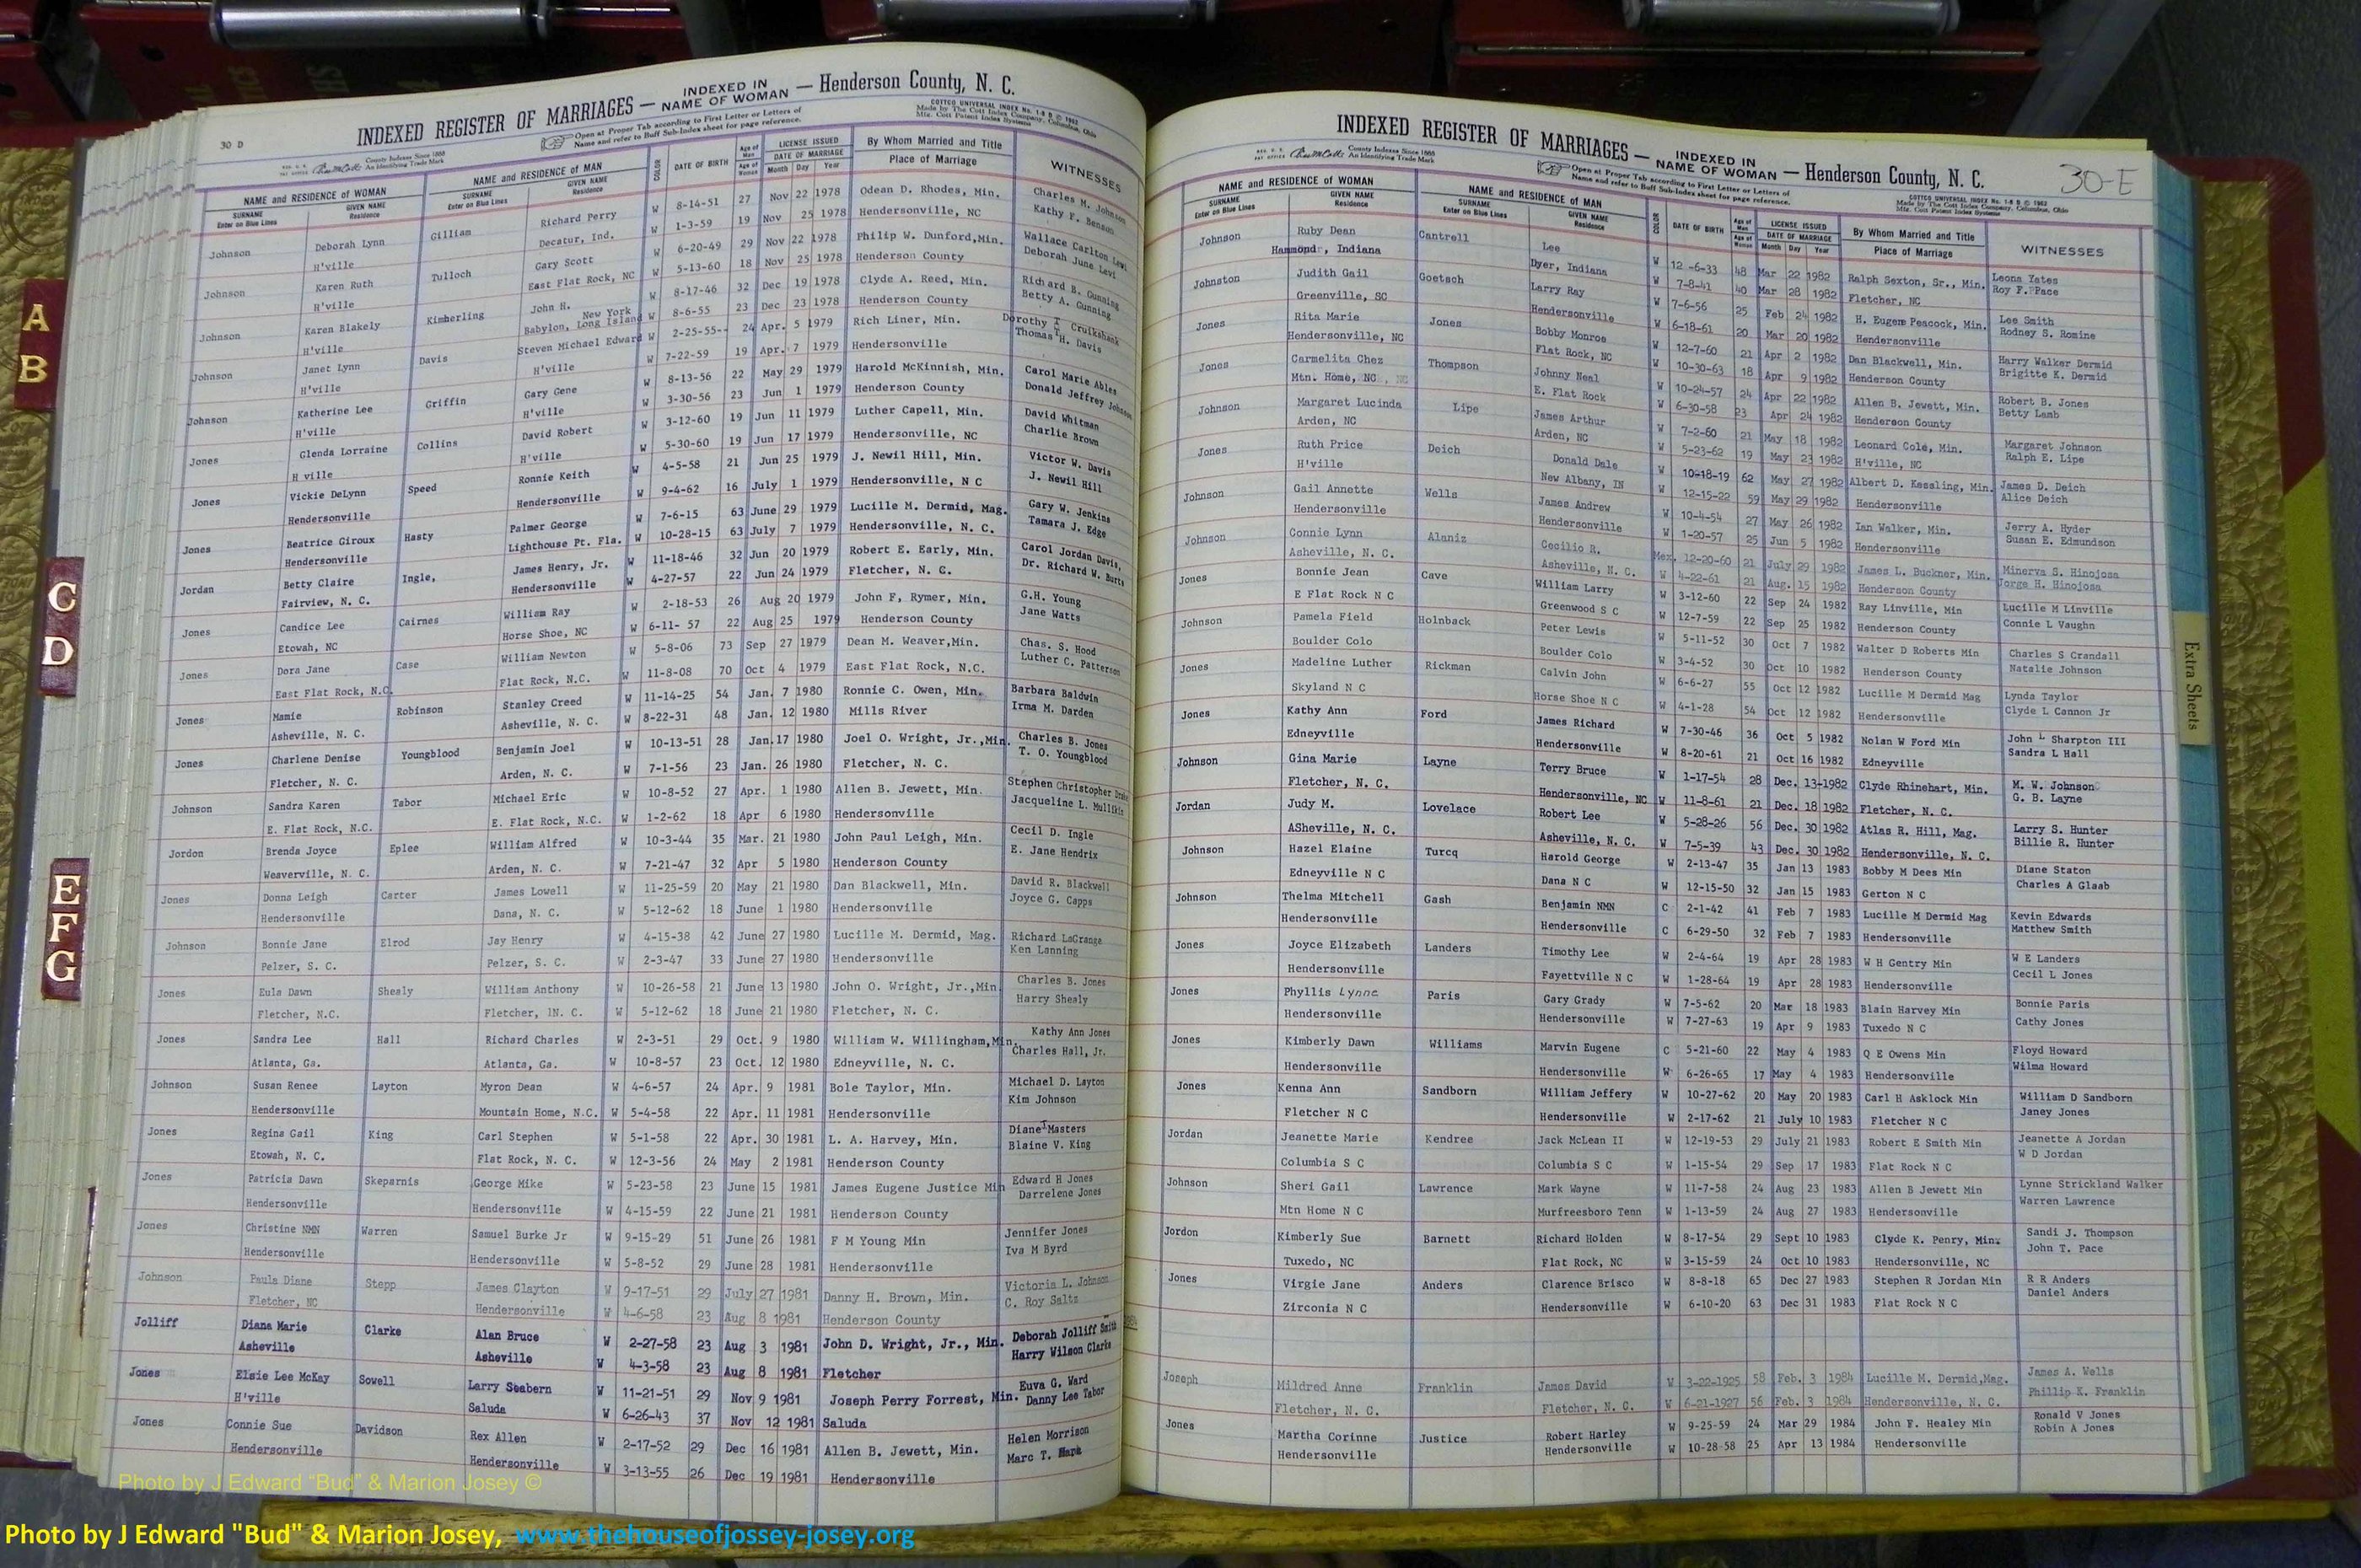 INDEXED REGISTER OF MARRIAGES — INDEXED IN NAME OF WOMAN — Henderson County, N. C.
30 D
County Indexes Since 1888
An Identifying Trade Mark
Open at Proper Tab according to First Letter or Letters of
Name and refer to Buff Sub-Index sheet for page reference.
COTTCO UNIVERSAL INDEX No. 1-8 D © 1962
Made by The Cott Index Company, Columbus, Ohio
Mfg. Cott Patent Index Systems
NAME and RESIDENCE OF WOMAN NAME and RESIDENCE OF MAN COLOR DATE OF BIRTH Age of Man LICENSE ISSUED By Whom Married and Title WITNESSES
SURNAME GIVEN NAME SURNAME GIVEN NAME Age of Woman DATE OF MARRIAGE Place of Marriage
Enter on Blue Lines Residence Enter on Blue Lines Residence Month Day Year
Johnson Deborah Lynn Gilliam Richard Perry W 8-14-51 27 Nov 22 1978 Odean D. Rhodes, Min. Charles M. Johnson
H'ville Decatur, Ind. W 1-3-59 19 Nov 25 1978 Hendersonville, NC Kathy F. Benson
Johnson Karen Ruth Tulloch Gary Scott W 6-20-49 29 Nov 22 1978 Philip W. Dunford,Min. Wallace Carlton Levi
H'ville East Flat Rock, NC W 5-13-60 18 Nov 25 1978 Henderson County Deborah June Levi
Johnson Karen Blakely Kimberling John H. W 8-17-46 32 Dec 19 1978 Clyde A. Reed, Min. Richard B. Gunning
H'ville New York Babylon, Long Island W 8-6-55 23 Dec 23 1978 Henderson County Betty A. Gunning
Johnson Janet Lynn Davis Steven Michael Edward W 2-25-55-- 24 Apr. 5 1979 Rich Liner, Min. Dorothy T Cruikshank
H'ville H'ville W 7-22-59 19 Apr. 7 1979 Hendersonville Thomas H. Davis
Johnson Katherine Lee Griffin Gary Gene W 8-13-56 22 May 29 1979 Harold McKinnish, Min. Carol Marie Ables
H'ville H'ville W 3-30-56 23 Jun 1 1979 Henderson County Donald Jeffrey Johnson
Jones Glenda Lorraine Collins David Robert W 3-12-60 19 Jun 11 1979 Luther Capell, Min. David Whitman
H ville H'ville W 5-30-60 19 Jun 17 1979 Hendersonville, NC Charlie Brown
Jones Vickie DeLynn Speed Ronnie Keith W 4-5-58 21 Jun 25 1979 J. Newil Hill, Min. Victor W. Davis
Hendersonville Hendersonville W 9-4-62 16 July 1 1979 Hendersonville, N C J. Newil Hill
Jones Beatrice Giroux Hasty Palmer George W 7-6-15 63 June 29 1979 Lucille M. Dermid, Mag. Gary W. Jenkins
Hendersonville Lighthouse Pt. Fla. W 10-28-15 63 July 7 1979 Hendersonville, N. C. Tamara J. Edge
Jordan Betty Claire Ingle, James Henry, Jr. W 11-18-46 32 Jun 20 1979 Robert E. Early, Min. Carol Jordan Davis,
Fairview, N. C. Hendersonville W 4-27-57 22 Jun 24 1979 Fletcher, N. C. Dr. Richard W. Butts
Jones Candice Lee Cairnes William Ray W 2-18-53 26 Aug 20 1979 John F, Rymer, Min. G.H. Young
Etowah, NC Horse Shoe, NC W 6-11- 57 22 Aug 25 1979 Henderson County Jane Watts
Jones Dora Jane Case William Newton W 5-8-06 73 Sep 27 1979 Dean M. Weaver,Min. Chas. S. Hood
East Flat Rock, N.C. Flat Rock, N.C. W 11-8-08 70 Oct 4 1979 East Flat Rock, N.C. Luther C. Patterson
Jones Mamie Robinson Stanley Creed W 11-14-25 54 Jan. 7 1980 Ronnie C. Owen, Min. Barbara Baldwin
Asheville, N. C. Asheville, N. C. W 8-22-31 48 Jan. 12 1980 Mills River Irma M. Darden
Jones Charlene Denise Youngblood Benjamin Joel W 10-13-51 28 Jan.17 1980 Joel O. Wright, Jr.,Min. Charles B. Jones
Fletcher, N. C. Arden, N. C. W 7-1-56 23 Jan. 26 1980 Fletcher, N. C. T. O. Youngblood
Johnson Sandra Karen Tabor Michael Eric W 10-8-52 27 Apr. 1 1980 Allen B. Jewett, Min. Stephen Christopher Drake
E. Flat Rock, N.C. E. Flat Rock, N.C. W 1-2-62 18 Apr 6 1980 Hendersonville Jacqueline L. Mullikin
Jordon Brenda Joyce Eplee William Alfred W 10-3-44 35 Mar. 21 1980 John Paul Leigh, Min. Cecil D. Ingle
Weaverville, N. C. Arden, N. C. W 7-21-47 32 Apr 5 1980 Henderson County E. Jane Hendrix
Jones Donna Leigh Carter James Lowell W 11-25-59 20 May 21 1980 Dan Blackwell, Min. David R. Blackwell
Hendersonville Dana, N. C. W 5-12-62 18 June 1 1980 Hendersonville Joyce G. Capps
Johnson Bonnie Jane Elrod Jay Henry W 4-15-38 42 June 27 1980 Lucille M. Dermid, Mag. Richard LaGrange
Pelzer, S. C. Pelzer, S. C. W 2-3-47 33 June 27 1980 Hendersonville Ken Lanning
Jones Eula Dawn Shealy William Anthony W 10-26-58 21 June 13 1980 John O. Wright, Jr.,Min. Charles B. Jones
Fletcher, N.C. Fletcher, lN. C. W 5-12-62 18 June 21 1980 Fletcher, N. C. Harry Shealy
Jones Sandra Lee Hall Richard Charles W 2-3-51 29 Oct. 9 1980 William W. Willingham,Min. Kathy Ann Jones
Atlanta, Ga. Atlanta, Ga. W 10-8-57 23 Oct. 12 1980 Edneyville, N. C. Charles Hall, Jr.
Johnson Susan Renee Layton Myron Dean W 4-6-57 24 Apr. 9 1981 Bole Taylor, Min. Michael D. Layton
Hendersonville Mountain Home, N.C. W 5-4-58 22 Apr. 11 1981 Hendersonville Kim Johnson
Jones Regina Gail King Carl Stephen W 5-1-58 22 Apr. 30 1981 L. A. Harvey, Min. Diane T Masters
Etowah, N. C. Flat Rock, N. C. W 12-3-56 24 May 2 1981 Henderson County Blaine V. King
Jones Patricia Dawn Skeparnis George Mike W 5-23-58 23 June 15 1981 James Eugene Justice Min Edward H Jones
Hendersonville Hendersonville W 4-15-59 22 June 21 1981 Henderson County Darrelene Jones
Jones Christine NMN Warren Samuel Burke Jr W 9-15-29 51 June 26 1981 F M Young Min Jennifer Jones
Hendersonville Hendersonville W 5-8-52 29 June 28 1981 Hendersonville Iva M Byrd
Johnson Paula Diane Stepp James Clayton W 9-17-51 29 July 27 1981 Danny H. Brown, Min. Victoria L. Johnson
Fletcher, NC Hendersonville W 4-6-58 23 Aug 8 1981 Henderson County C. Roy Saltz
Jolliff Diana Marie Clarke Alan Bruce W 2-27-58 23 Aug 3 1981 John D. Wright, Jr., Min. Deborah Jolliff Smith
Asheville Asheville W 4-3-58 23 Aug 8 1981 Fletcher Harry Wilson Clarke
Jones Elsie Lee McKay Sowell Larry Seabern W 11-21-51 29 Nov 9 1981 Joseph Perry Forrest, Min. Euva G. Ward
H'ville Saluda W 6-26-43 37 Nov 12 1981 Saluda Danny Lee Tabor
Jones Connie Sue Davidson Rex Allen W 2-17-52 29 Dec 16 1981 Allen B. Jewett, Min. Helen Morrison
Hendersonville Hendersonville W 3-13-55 26 Dec 19 1981 Hendersonville Marc T.
INDEXED REGISTER OF MARRIAGES — INDEXED IN NAME OF WOMAN — Henderson County, N. C.
30-E
County Indexes Since 1888
An Identifying Trade Mark
Open at Proper Tab according to First Letter or Letters of
Name and refer to Buff Sub-Index sheet for page reference.
COTTCO UNIVERSAL INDEX No. 1-8 D © 1962
Made by The Cott Index Company, Columbus, Ohio
Mfg. Cott Patent Index Systems
NAME and RESIDENCE OF WOMAN NAME and RESIDENCE OF MAN COLOR DATE OF BIRTH Age of Man LICENSE ISSUED By Whom Married and Title WITNESSES
SURNAME GIVEN NAME SURNAME GIVEN NAME Age of Woman DATE OF MARRIAGE Place of Marriage
Enter on Blue Lines Residence Enter on Blue Lines Residence Month Day Year
Johnson Ruby Dean Cantrell Lee W 12 -6-33 48 Mar 22 1982 Ralph Sexton, Sr., Min. Leona Yates
Hammond, Indiana Dyer, Indiana W 7-8-41 40 Mar 28 1982 Fletcher, NC Roy F. Pace
Johnston Judith Gail Goetsch Larry Ray W 7-6-56 25 Feb 24 1982 H. Eugene Peacock, Min. Lee Smith
Greenville, SC Hendersonville W 6-18-61 20 Mar 20 1982 Hendersonville Rodney S. Romine
Jones Rita Marie Jones Bobby Monroe W 12-7-60 21 Apr 2 1982 Dan Blackwell, Min. Harry Walker Dermid
Hendersonville, NC Flat Rock, NC W 10-30-63 18 Apr 9 1982 Henderson County Brigitte K. Dermid
Jones Carmelita Chez Thompson Johnny Neal W 10-24-57 24 Apr 22 1982 Allen B. Jewett, Min. Robert B. Jones
Mtn. Home, NC E. Flat Rock W 6-30-58 23 Apr 24 1982 Henderson County Betty Lamb
Johnson Margaret Lucinda Lipe James Arthur W 7-2-60 21 May 18 1982 Leonard Cole, Min. Margaret Johnson
Arden, NC Arden, NC W 5-23-62 19 May 23 1982 H'ville, NC Ralph E. Lipe
Jones Ruth Price Deich Donald Dale W 10-18-19 62 May 27 1982 Albert D. Kessling, Min. James D. Deich
H'ville New Albany, IN W 12-15-22 59 May 29 1982 Hendersonville Alice Deich
Johnson Gail Annette Wells James Andrew W 10-4-54 27 May 26 1982 Ian Walker, Min. Jerry A. Hyder
Hendersonville Hendersonville W 1-20-57 25 Jun 5 1982 Hendersonville Susan E. Edmundson
Johnson Connie Lynn Alaniz Cecilio R. Mex. 12-20-60 21 July 29 1982 James L. Buckner, Min. Minerva S. Hinojosa
Asheville, N. C. Asheville, N. C. W 4-22-61 21 Aug. 15 1982 Henderson County Jorge H. Hinojosa
Jones Bonnie Jean Cave William Larry W 3-12-60 22 Sep 24 1982 Ray Linville, Min Lucille M Linville
E Flat Rock N C Greenwood S C W 12-7-59 22 Sep 25 1982 Henderson County Connie L Vaughn
Johnson Pamela Field Holnback Peter Lewis W 5-11-52 30 Oct 7 1982 Walter D Roberts Min Charles S Crandall
Boulder Colo Boulder Colo W 3-4-52 30 Oct 10 1982 Henderson County Natalie Johnson
Jones Madeline Luther Rickman Calvin John W 6-6-27 55 Oct 12 1982 Lucille M Dermid Mag Lynda Taylor
Skyland N C Horse Shoe N C W 4-1-28 54 Oct 12 1982 Hendersonville Clyde L Cannon Jr
Jones Kathy Ann Ford James Richard W 7-30-46 36 Oct 5 1982 Nolan W Ford Min John L Sharpton III
Edneyville Hendersonville W 8-20-61 21 Oct 16 1982 Edneyville Sandra L Hall
Johnson Gina Marie Layne Terry Bruce W 1-17-54 28 Dec. 13-1982 Clyde Rhinehart, Min. M. W. Johnson
Fletcher, N. C. Hendersonville, NC W 11-8-61 21 Dec. 18 1982 Fletcher, N. C. G. B. Layne
Jordan Judy M. Lovelace Robert Lee W 5-28-26 56 Dec. 30 1982 Atlas R. Hill, Mag. Larry S. Hunter
ASheville, N. C. Asheville, N. C. W 7-5-39 43 Dec. 30 1982 Hendersonville, N. C. Billie R. Hunter
Johnson Hazel Elaine Turcq Harold George W 2-13-47 35 Jan 13 1983 Bobby M Dees Min Diane Staton
Edneyville N C Dana N C W 12-15-50 32 Jan 15 1983 Gerton N C Charles A Glaab
Johnson Thelma Mitchell Gash Benjamin NMN C 2-1-42 41 Feb 7 1983 Lucille M Dermid Mag Kevin Edwards
Hendersonville Hendersonville C 6-29-50 32 Feb 7 1983 Hendersonville Matthew Smith
Jones Joyce Elizabeth Landers Timothy Lee W 2-4-64 19 Apr 28 1983 W H Gentry Min W E Landers
Hendersonville Fayettville N C W 1-28-64 19 Apr 28 1983 Hendersonville Cecil L Jones
Jones Phyllis Lynne Paris Gary Grady W 7-5-62 20 Mar 18 1983 Blain Harvey Min Bonnie Paris
Hendersonville Hendersonville W 7-27-63 19 Apr 9 1983 Tuxedo N C Cathy Jones
Jones Kimberly Dawn Williams Marvin Eugene C 5-21-60 22 May 4 1983 Q E Owens Min Floyd Howard
Hendersonville Hendersonville W 6-26-65 17 May 4 1983 Hendersonville Wilma Howard
Jones Kenna Ann Sandborn William Jeffery W 10-27-62 20 May 20 1983 Carl H Asklock Min William D Sandborn
Fletcher N C Hendersonville W 2-17-62 21 July 10 1983 Fletcher N C Janey Jones
Jordan Jeanette Marie Kendree Jack McLean II W 12-19-53 29 July 21 1983 Robert E Smith Min Jeanette A Jordan
Columbia S C Columbia S C W 1-15-54 29 Sep 17 1983 Flat Rock N C W D Jordan
Johnson Sheri Gail Lawrence Mark Wayne W 11-7-58 24 Aug 23 1983 Allen B Jewett Min Lynne Strickland Walker
Mtn Home N C Murfreesboro Tenn W 1-13-59 24 Aug 27 1983 Hendersonville Warren Lawrence
Jordon Kimberly Sue Barnett Richard Holden W 8-17-54 29 Sept 10 1983 Clyde K. Penry, Min. Sandi J. Thompson
Tuxedo, NC Flat Rock, NC W 3-15-59 24 Oct 10 1983 Hendersonville, NC John T. Pace
Jones Virgie Jane Anders Clarence Brisco W 8-8-18 65 Dec 27 1983 Stephen R Jordan Min R R Anders
Zirconia N C Hendersonville W 6-10-20 63 Dec 31 1983 Flat Rock N C Daniel Anders
Joseph Mildred Anne Franklin James David W 3-22-1925 58 Feb. 3 1984 Lucille M. Dermid,Mag. James A. Wells
Fletcher, N. C. Fletcher, N. C. W 6-21-1927 56 Feb. 3 1984 Hendersonville, N. C. Phillip K. Franklin
Jones Martha Corinne Justice Robert Harley W 9-25-59 24 Mar 29 1984 John F. Healey Min Ronald V Jones
Hendersonville Hendersonville W 10-28-58 25 Apr 13 1984 Hendersonville Robin A Jones
A
B
C
D
E
F
G
Extra Sheets
Photo by J Edward "Bud" & Marion Josey ©
Photo by J Edward "Bud" & Marion Josey, www.thehouseofjossey-josey.org